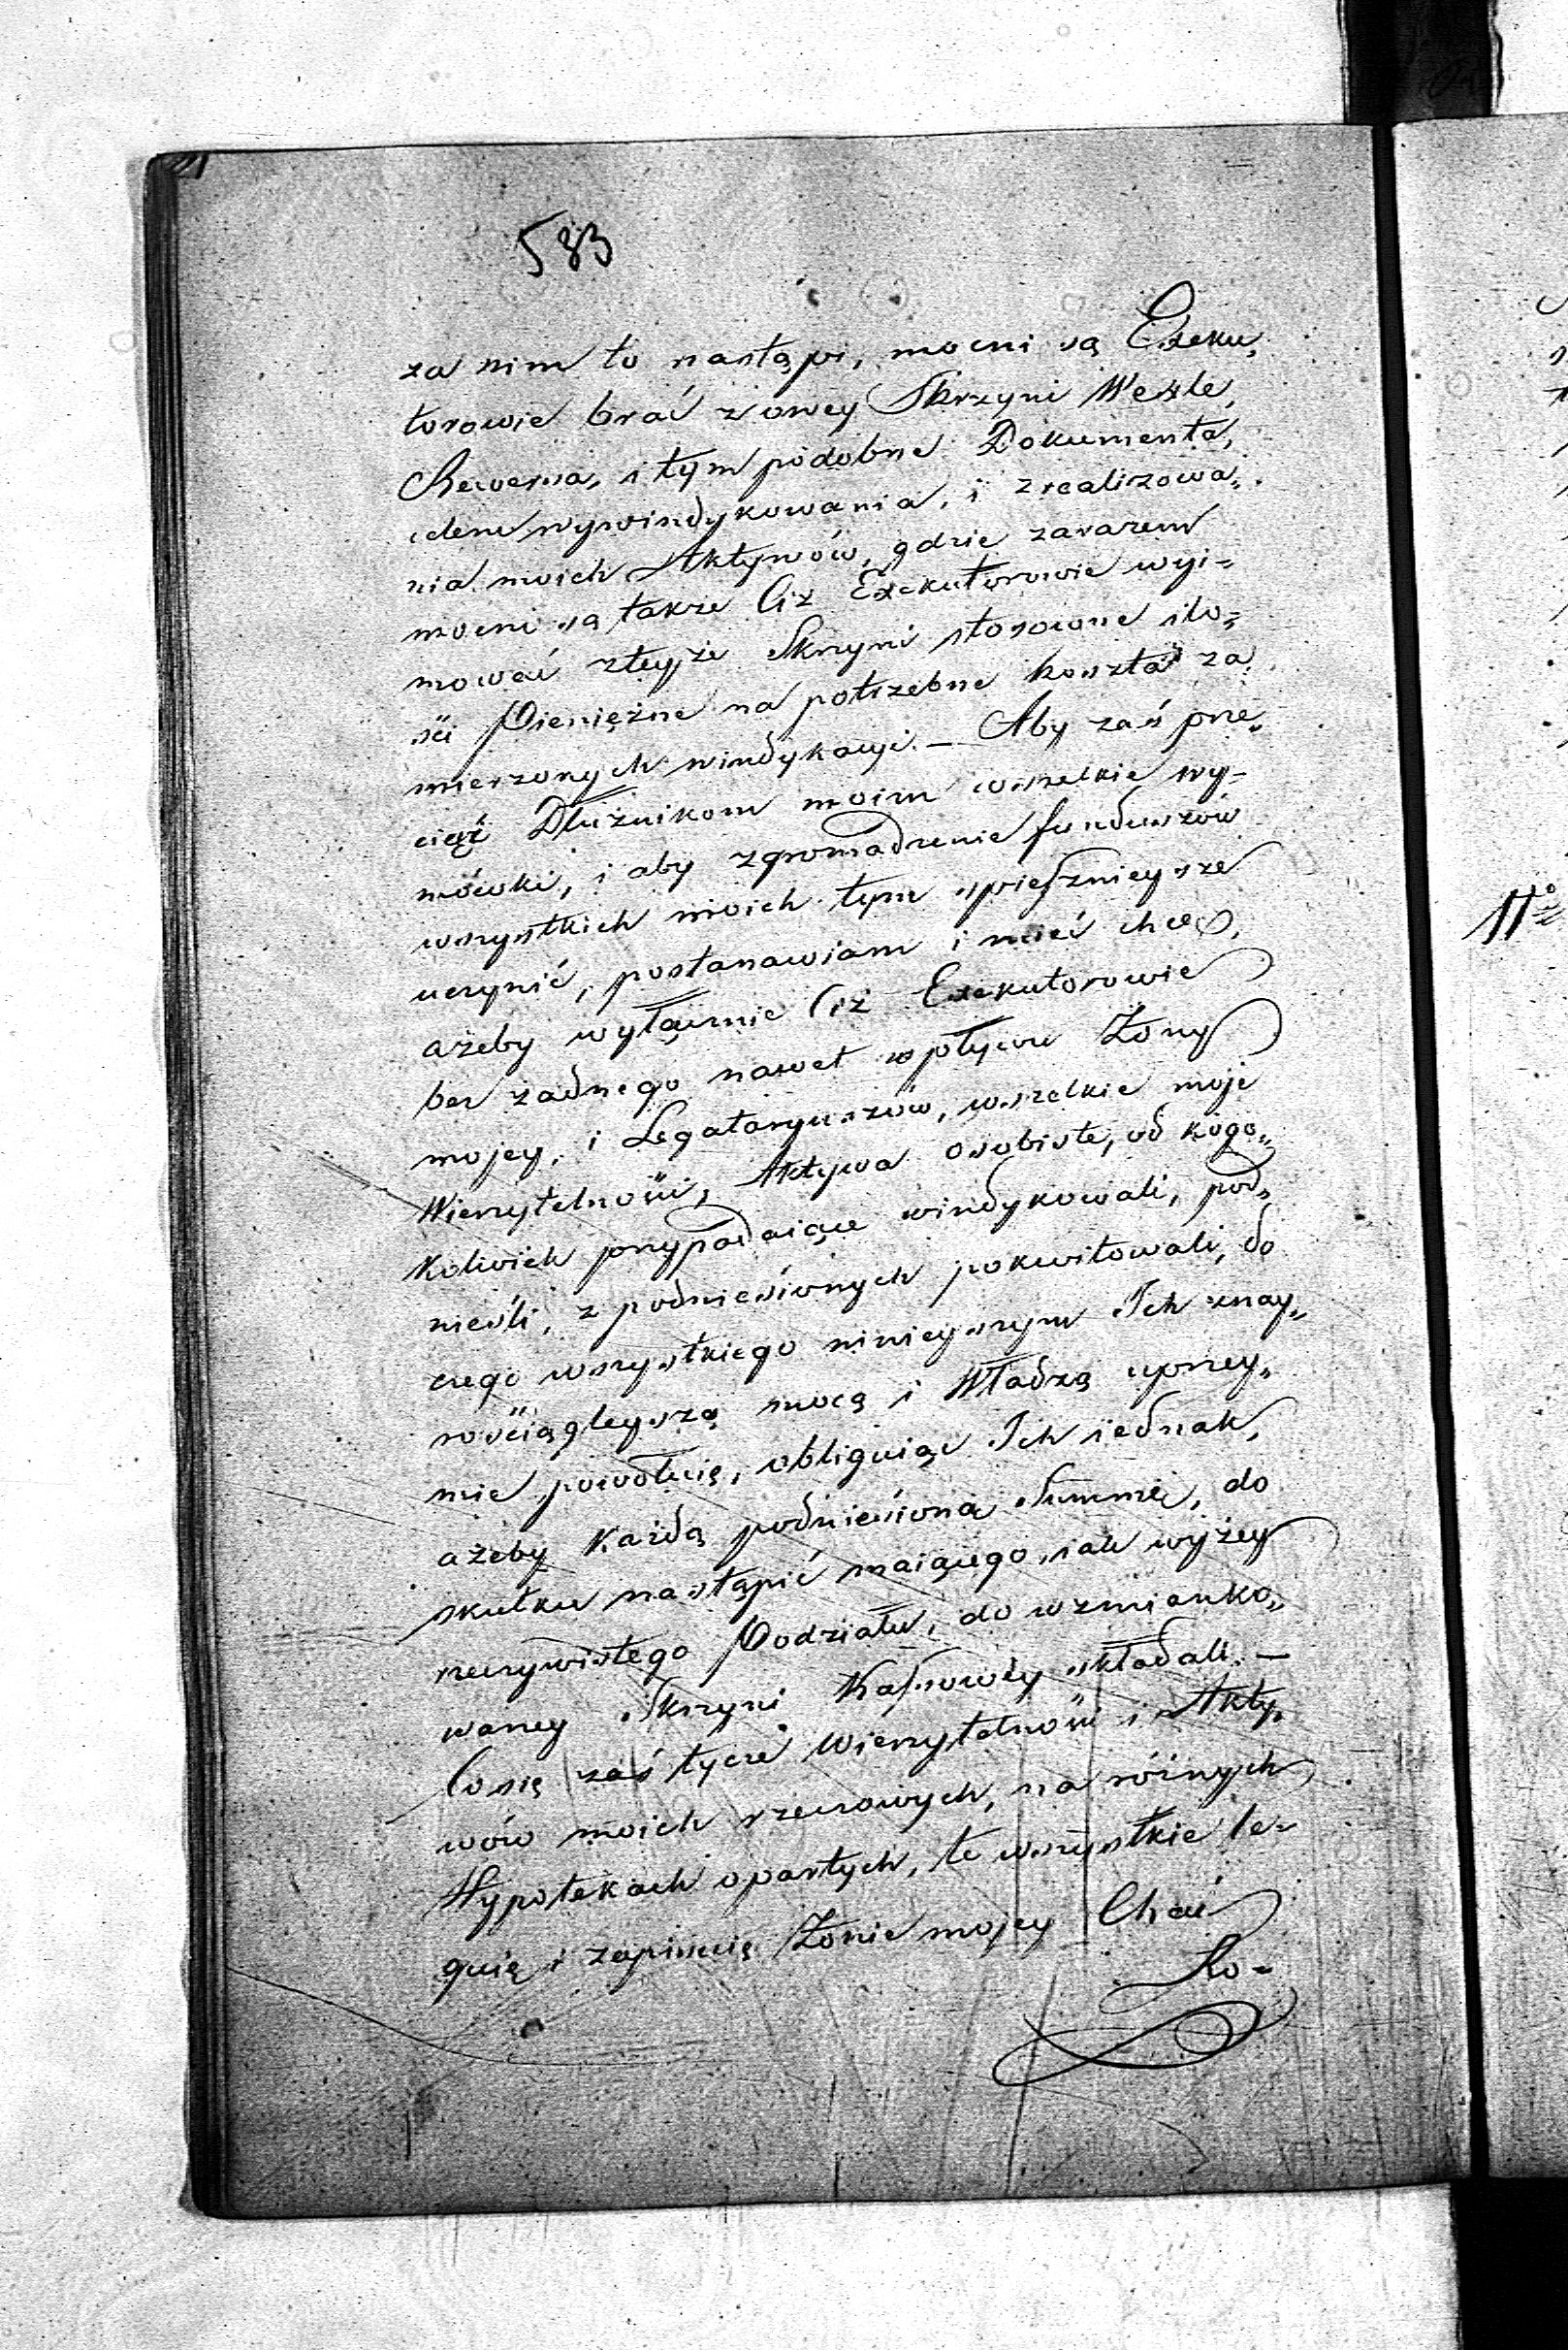 583
za nim to nastąpi, mocni są Exeku„
torowie brać z owey Skrzyni Wexle,
Rewersa, i tym podobne Dokumenta,
celem wywindykowania, i zrealizowa„
nia moich Aktywów, gdzie zarazem
mocni są także Ciż Exekutorowie wyi-
mować z teyże Skrzyni stosowne ilo„
ści Pieniężne na potrzebne koszta za„
mierzonych windykacyi. — Aby zaś prze„
ciąć Dłużnikom moim wszelkie wy-
mówki, i aby zgromadzenie funduszów
wszystkich moich tym spieszniejsze
uczynić, postanawiam i mieć chcę,
ażeby wyłącznie Ciż Exekutorowie
bez żadnego nawet wpływu Żony
mojey, i Legataryuszów, wszelkie moje
Wierzytelności, Aktywa osobiste, od kogo„
kolwiek przypadaiące windykowali, pod„
nieśli, z podniesionych pokwitowali, do
czego wszystkiego ninieyszym Ich z nay„
rościągleyszą mocą i Władzą uprzey„
mie powołuię, obliguiąc Ich iednak,
ażeby każdą podniesioną Summę, do
skutku nastąpić maiącego, iak wyżey
rzeczywistego Podziału, do wzmianko„
waney Skrzyni Kassowéy składali. —
Co się zaś tycze Wierzytelności i Akty„
wów moich rzeczowych, na różnych
Hypotekach opartych, te wszystkie le-
guię i zapisuię Żonie mojey Choć
Ko-
11º